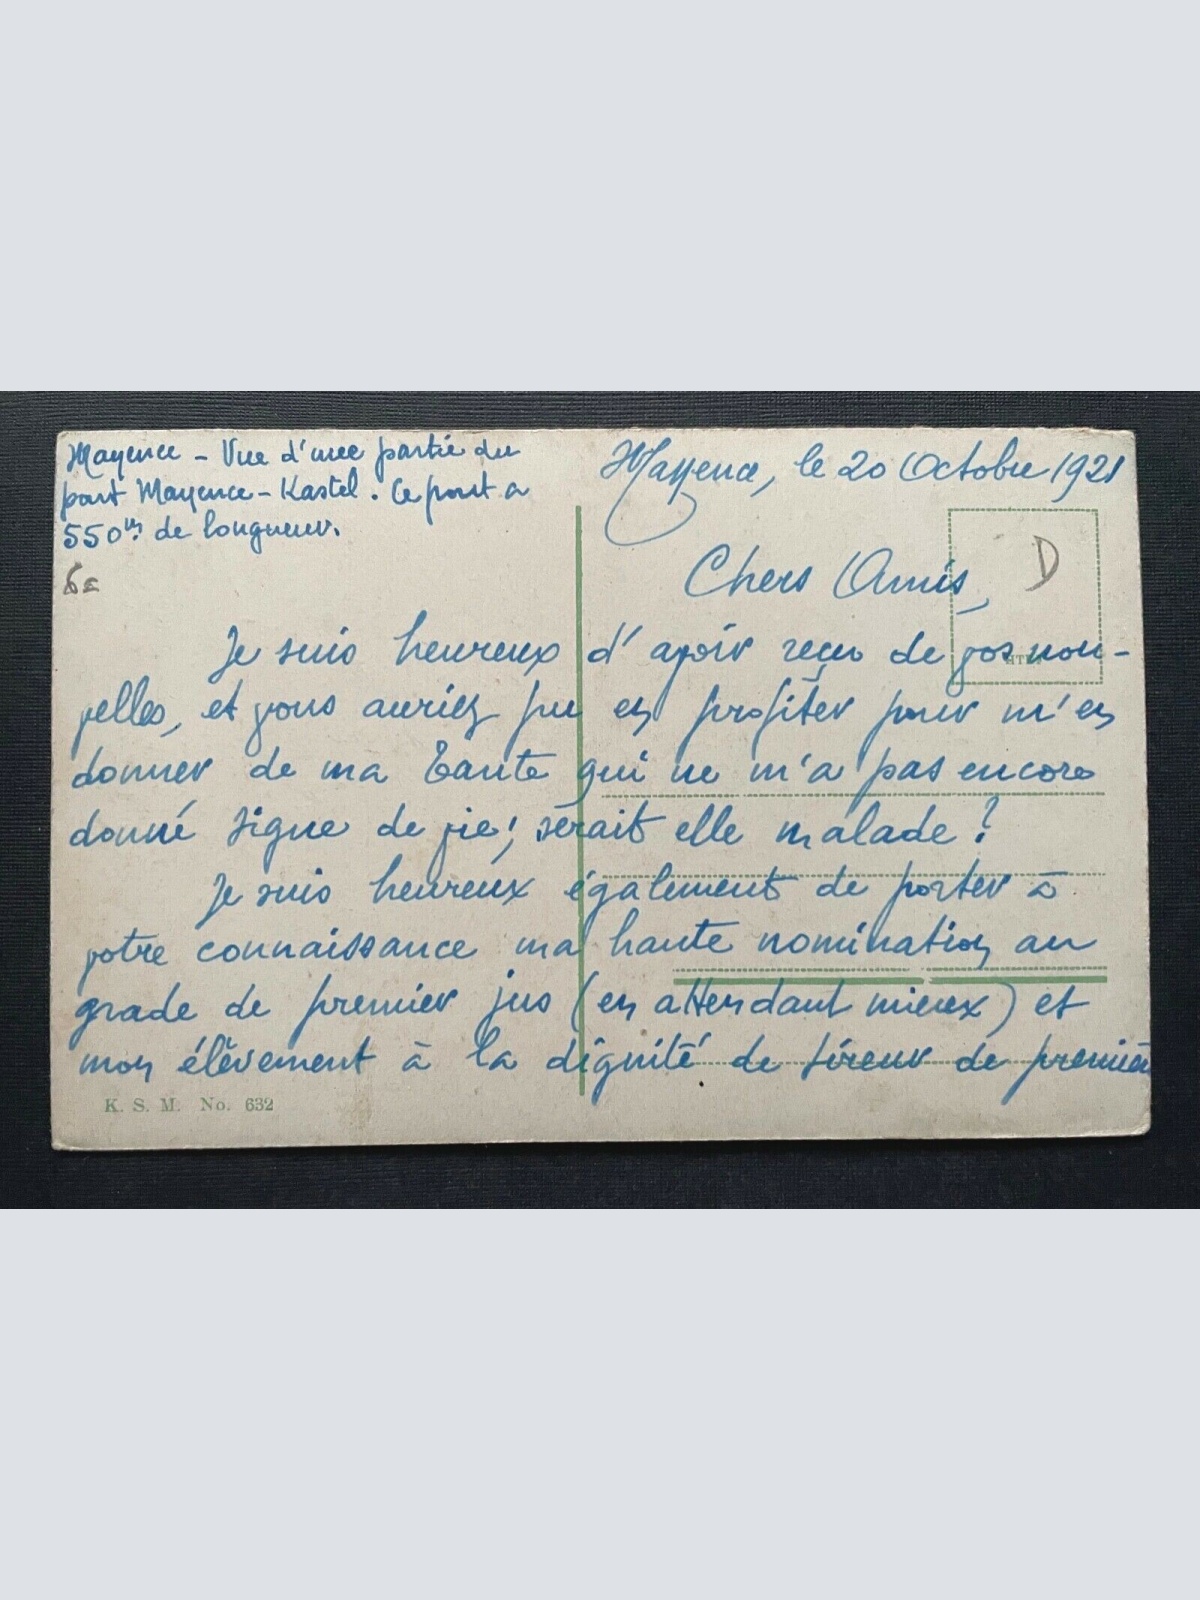 Mayence - Vue d'une partie du
pont Mayence-Kastel. Ce pont a
550m. de longueur.
Mayence, le 20 Octobre 1921
D
Chers Amis,
Je suis heureux d'avoir reçu de vos nou-
velles, et vous auriez pu en profiter pour m'en
donner de ma Tante qui ne m'a pas encore
donné signe de vie; serait elle malade?
Je suis heureux également de porter à
votre connaissance ma haute nomination au
grade de premier jus (en attendant mieux) et
mon élèvement à la dignité de tireur de première
K. S. M. No. 632